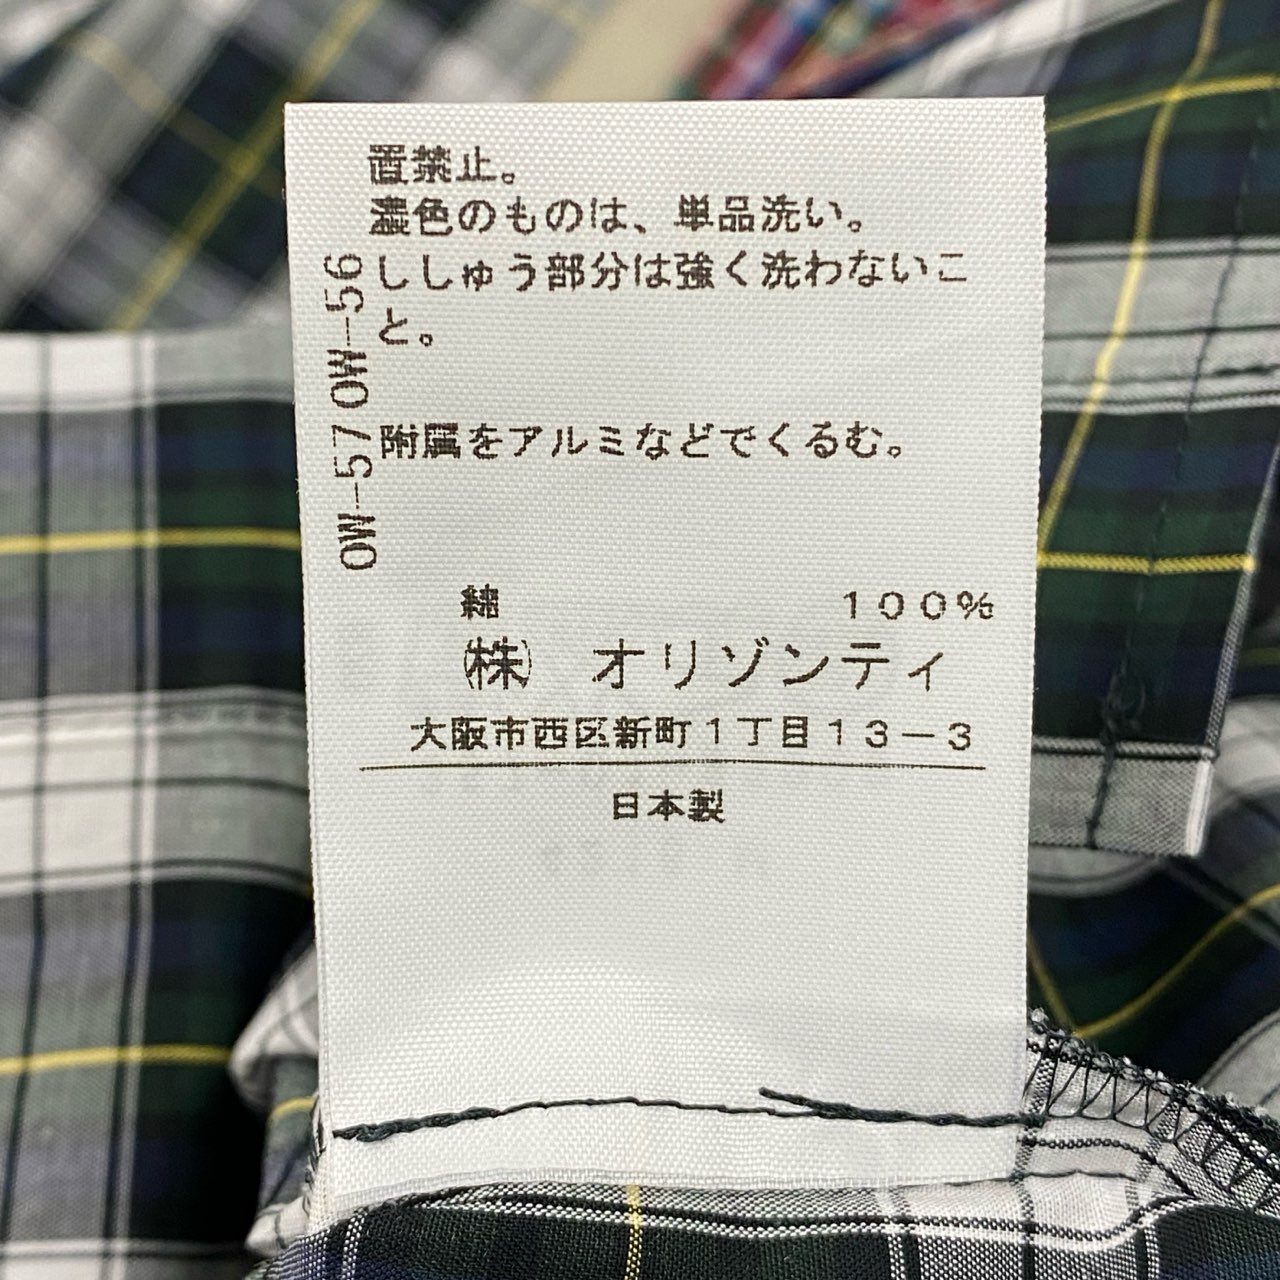 置禁止。
濃色のものは、単品洗い。
ししゅう部分は強く洗わないこ
と。
附属をアルミなどでくるむ。
OW-57OW-56
綿 100%
㈱ オリゾンティ
大阪市西区新町1丁目13-3
日本製